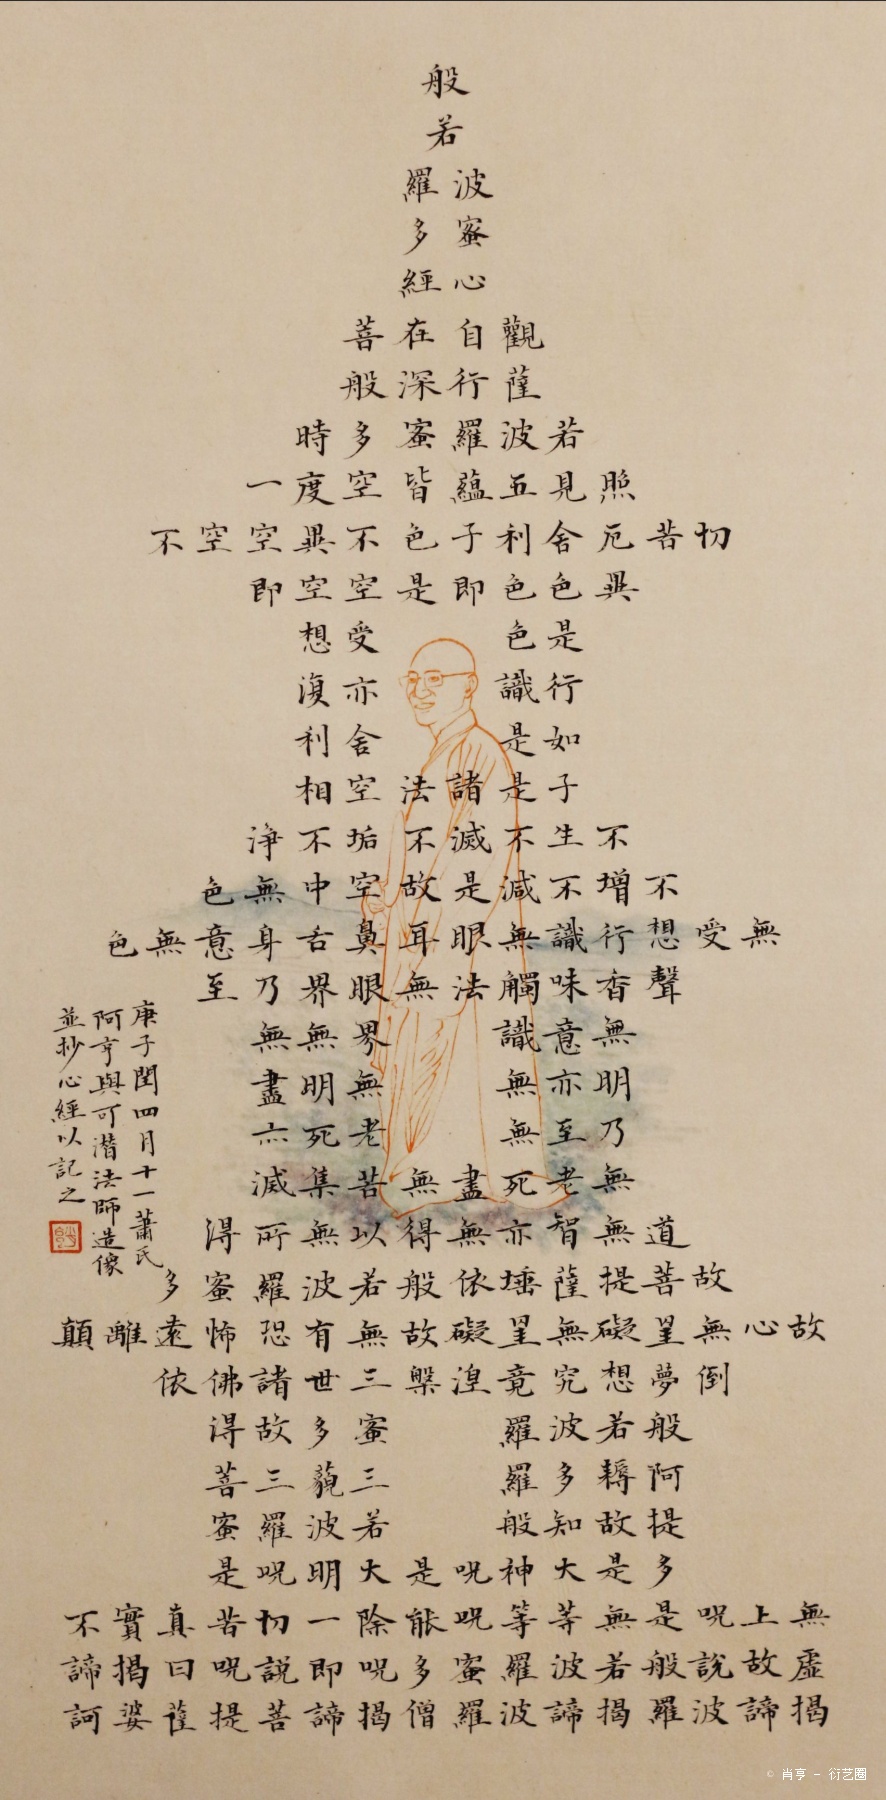 般
若
波羅
蜜多
心經
觀自在菩
薩行深般
若波羅蜜多時
照見五蘊皆空度一
切苦厄舍利子色不異空空不
異色色即是空空即
是色受想
行識亦復
如是舍利
子是諸法空相
不生不滅不垢不淨
不增不減是故空中無色
無受想行識無眼耳鼻舌身意無色
聲香味觸法無眼界乃至
無意識界無無
明亦無無明盡
乃至無老死亦
無老死盡無苦集滅
道無智亦無得以無所得
故菩提薩埵依般若波羅蜜多
故心無罣礙無罣礙故無有恐怖遠離顛
倒夢想究竟涅槃三世諸佛依
般若波羅蜜多故得
阿耨多羅三藐三菩
提故知般若波羅蜜
多是大神呪是大明呪是
無上呪是無等等呪能除一切苦真實不
虛故說般若波羅蜜多呪即說呪曰揭諦
揭諦波羅揭諦波羅僧揭諦菩提薩婆訶
庚子閏四月十一蕭氏
阿亨與可潛法師造像
並抄心經以記之
© 肖亨 - 衍艺圈